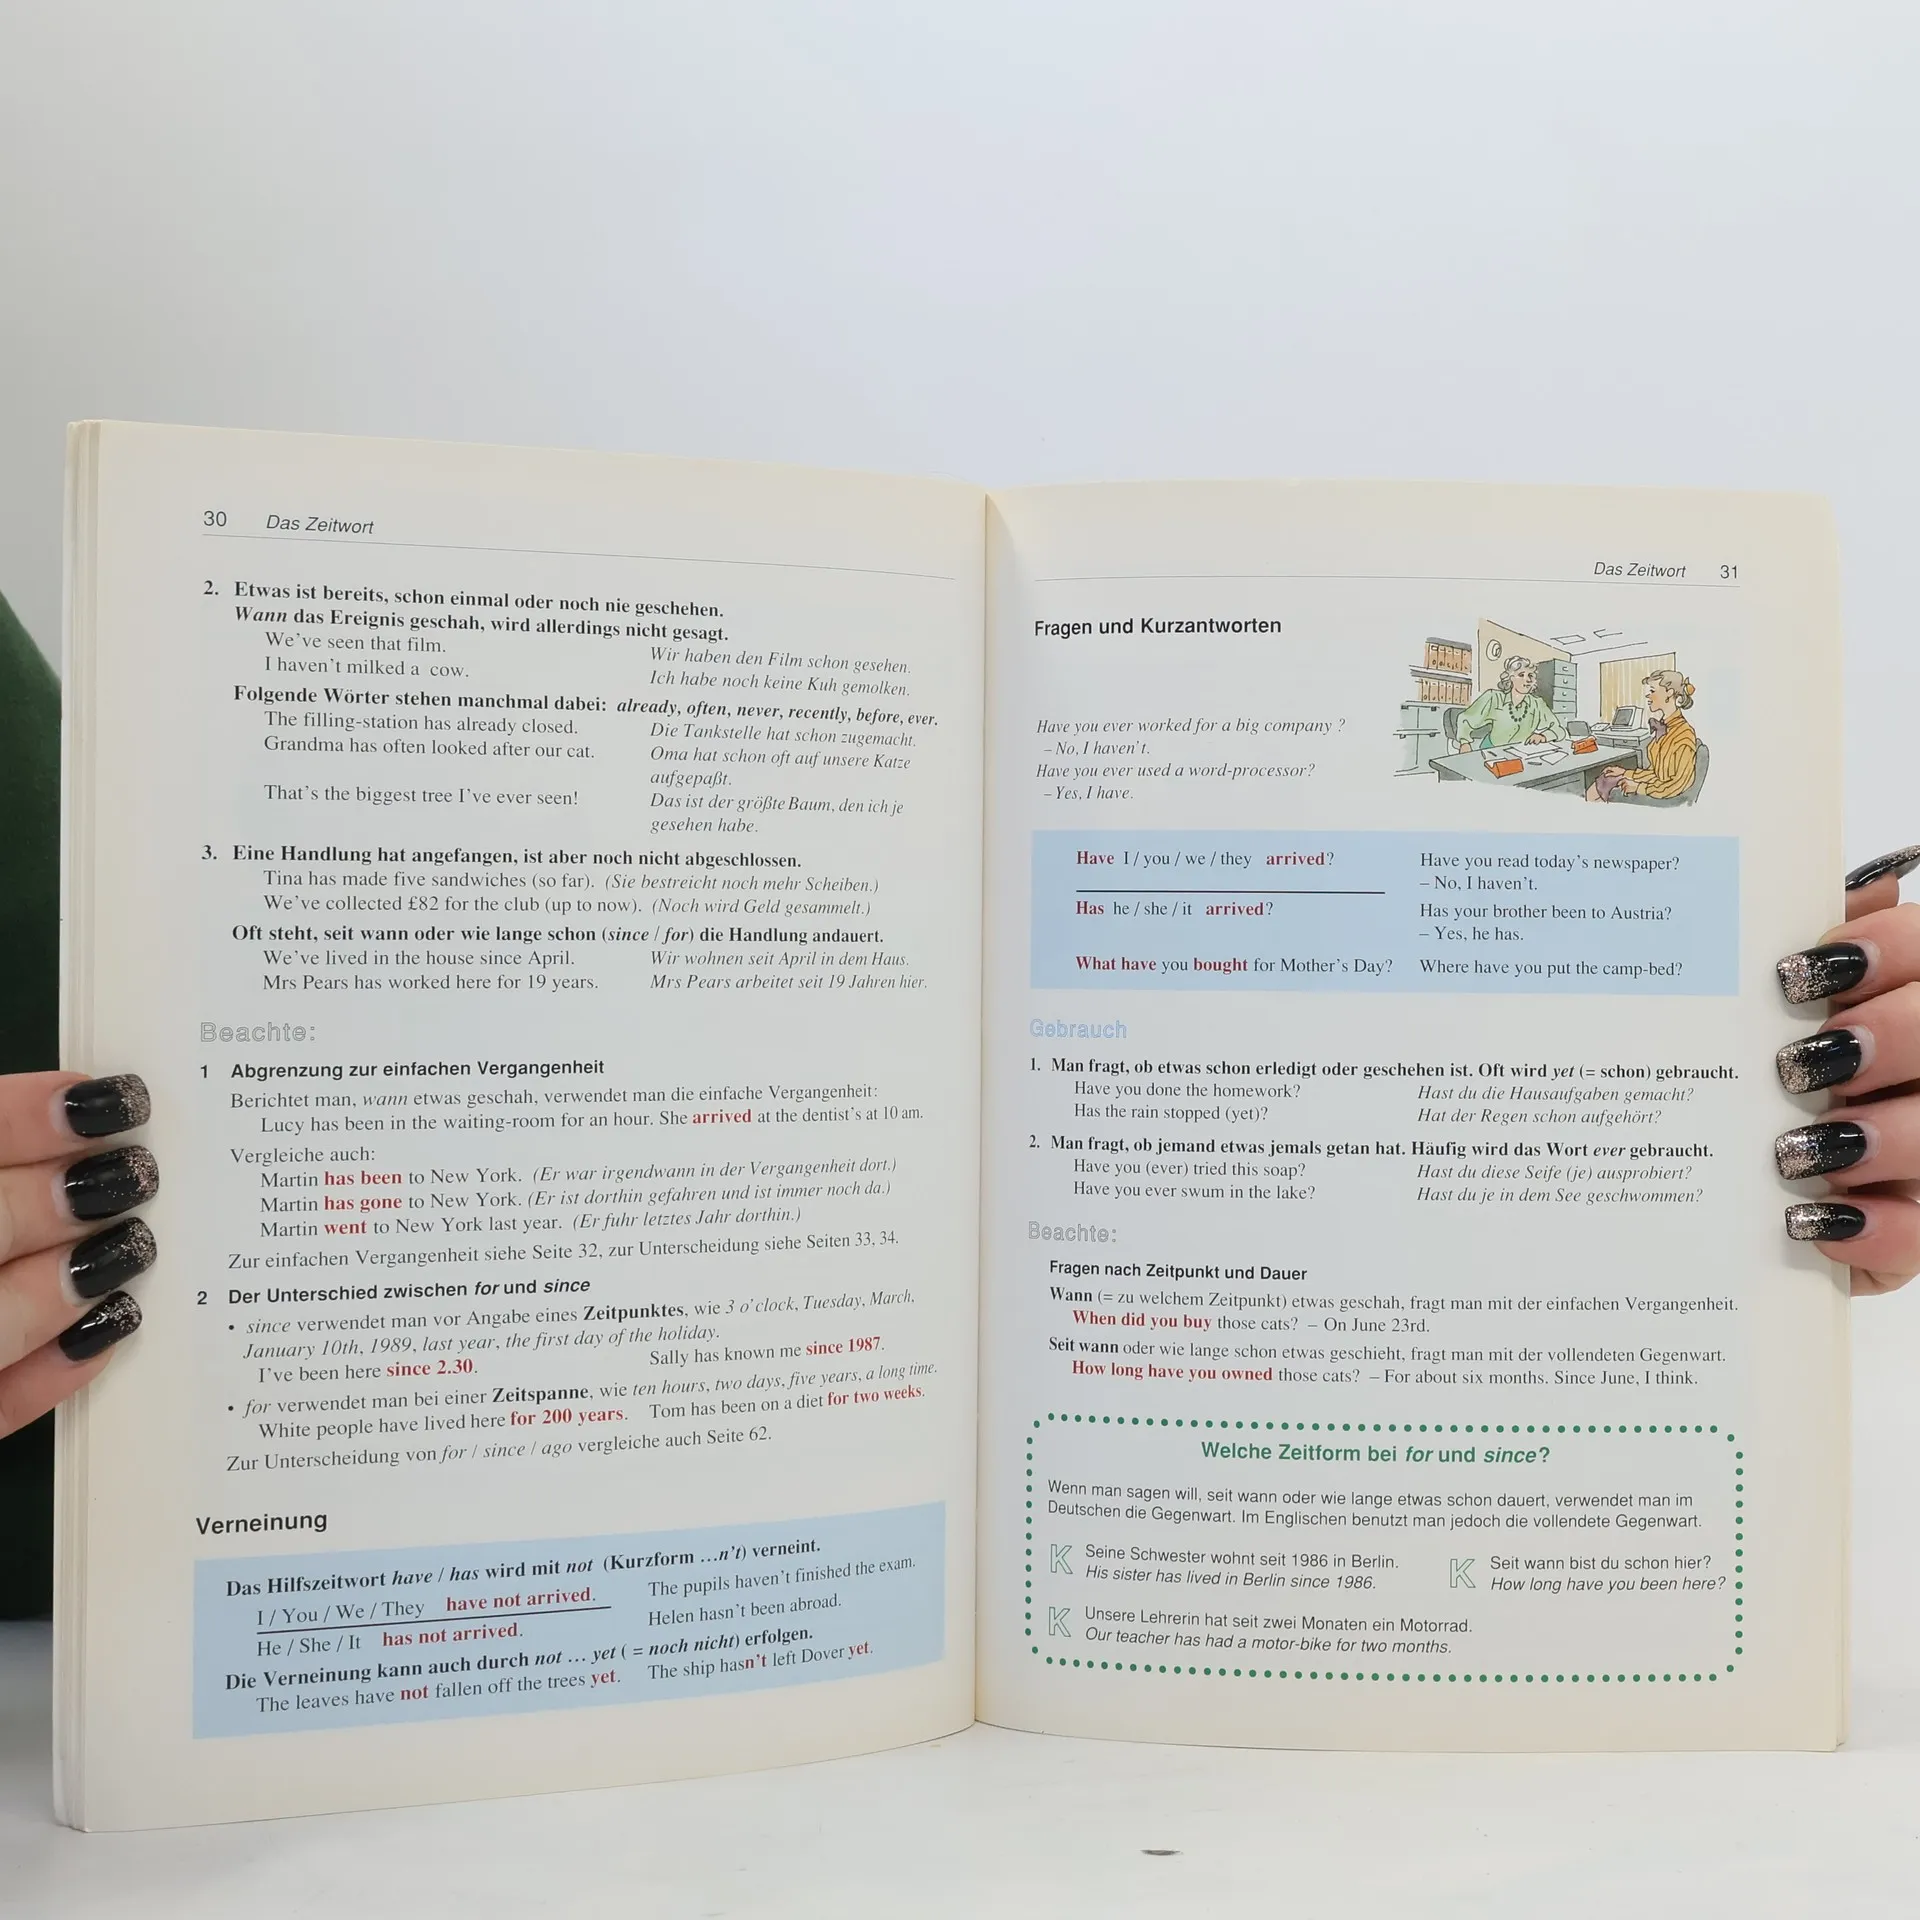 30 Das Zeitwort
2. Etwas ist bereits, schon einmal oder noch nie geschehen.
Wann das Ereignis geschah, wird allerdings nicht gesagt.
We've seen that film. Wir haben den Film schon gesehen.
I haven't milked a cow. Ich habe noch keine Kuh gemolken.
Folgende Wörter stehen manchmal dabei: already, often, never, recently, before, ever.
The filling-station has already closed. Die Tankstelle hat schon zugemacht.
Grandma has often looked after our cat. Oma hat schon oft auf unsere Katze
aufgepaßt.
That's the biggest tree I've ever seen! Das ist der größte Baum, den ich je
gesehen habe.
3. Eine Handlung hat angefangen, ist aber noch nicht abgeschlossen.
Tina has made five sandwiches (so far). (Sie bestreicht noch mehr Scheiben.)
We've collected £82 for the club (up to now). (Noch wird Geld gesammelt.)
Oft steht, seit wann oder wie lange schon (since / for) die Handlung andauert.
We've lived in the house since April. Wir wohnen seit April in dem Haus.
Mrs Pears has worked here for 19 years. Mrs Pears arbeitet seit 19 Jahren hier.
Beachte:
1 Abgrenzung zur einfachen Vergangenheit
Berichtet man, wann etwas geschah, verwendet man die einfache Vergangenheit:
Lucy has been in the waiting-room for an hour. She arrived at the dentist's at 10 am.
Vergleiche auch:
Martin has been to New York. (Er war irgendwann in der Vergangenheit dort.)
Martin has gone to New York. (Er ist dorthin gefahren und ist immer noch da.)
Martin went to New York last year. (Er fuhr letztes Jahr dorthin.)
Zur einfachen Vergangenheit siehe Seite 32, zur Unterscheidung siehe Seiten 33, 34.
2 Der Unterschied zwischen for und since
• since verwendet man vor Angabe eines Zeitpunktes, wie 3 o'clock, Tuesday, March,
January 10th, 1989, last year, the first day of the holiday.
I've been here since 2.30. Sally has known me since 1987.
• for verwendet man bei einer Zeitspanne, wie ten hours, two days, five years, a long time.
White people have lived here for 200 years. Tom has been on a diet for two weeks.
Zur Unterscheidung von for / since / ago vergleiche auch Seite 62.
Verneinung
Das Hilfszeitwort have / has wird mit not (Kurzform ...n't) verneint.
I / You / We / They have not arrived. The pupils haven't finished the exam.
He / She / It has not arrived. Helen hasn't been abroad.
Die Verneinung kann auch durch not ... yet ( = noch nicht) erfolgen.
The leaves have not fallen off the trees yet. The ship hasn't left Dover yet.
Das Zeitwort 31
Fragen und Kurzantworten
Have you ever worked for a big company ?
– No, I haven't.
Have you ever used a word-processor?
– Yes, I have.
Have I / you / we / they arrived? Have you read today's newspaper?
– No, I haven't.
Has he / she / it arrived? Has your brother been to Austria?
– Yes, he has.
What have you bought for Mother's Day? Where have you put the camp-bed?
Gebrauch
1. Man fragt, ob etwas schon erledigt oder geschehen ist. Oft wird yet (= schon) gebraucht.
Have you done the homework? Hast du die Hausaufgaben gemacht?
Has the rain stopped (yet)? Hat der Regen schon aufgehört?
2. Man fragt, ob jemand etwas jemals getan hat. Häufig wird das Wort ever gebraucht.
Have you (ever) tried this soap? Hast du diese Seife (je) ausprobiert?
Have you ever swum in the lake? Hast du je in dem See geschwommen?
Beachte:
Fragen nach Zeitpunkt und Dauer
Wann (= zu welchem Zeitpunkt) etwas geschah, fragt man mit der einfachen Vergangenheit.
When did you buy those cats? – On June 23rd.
Seit wann oder wie lange schon etwas geschieht, fragt man mit der vollendeten Gegenwart.
How long have you owned those cats? – For about six months. Since June, I think.
Welche Zeitform bei for und since?
Wenn man sagen will, seit wann oder wie lange etwas schon dauert, verwendet man im
Deutschen die Gegenwart. Im Englischen benutzt man jedoch die vollendete Gegenwart.
K Seine Schwester wohnt seit 1986 in Berlin. K Seit wann bist du schon hier?
His sister has lived in Berlin since 1986. How long have you been here?
K Unsere Lehrerin hat seit zwei Monaten ein Motorrad.
Our teacher has had a motor-bike for two months.